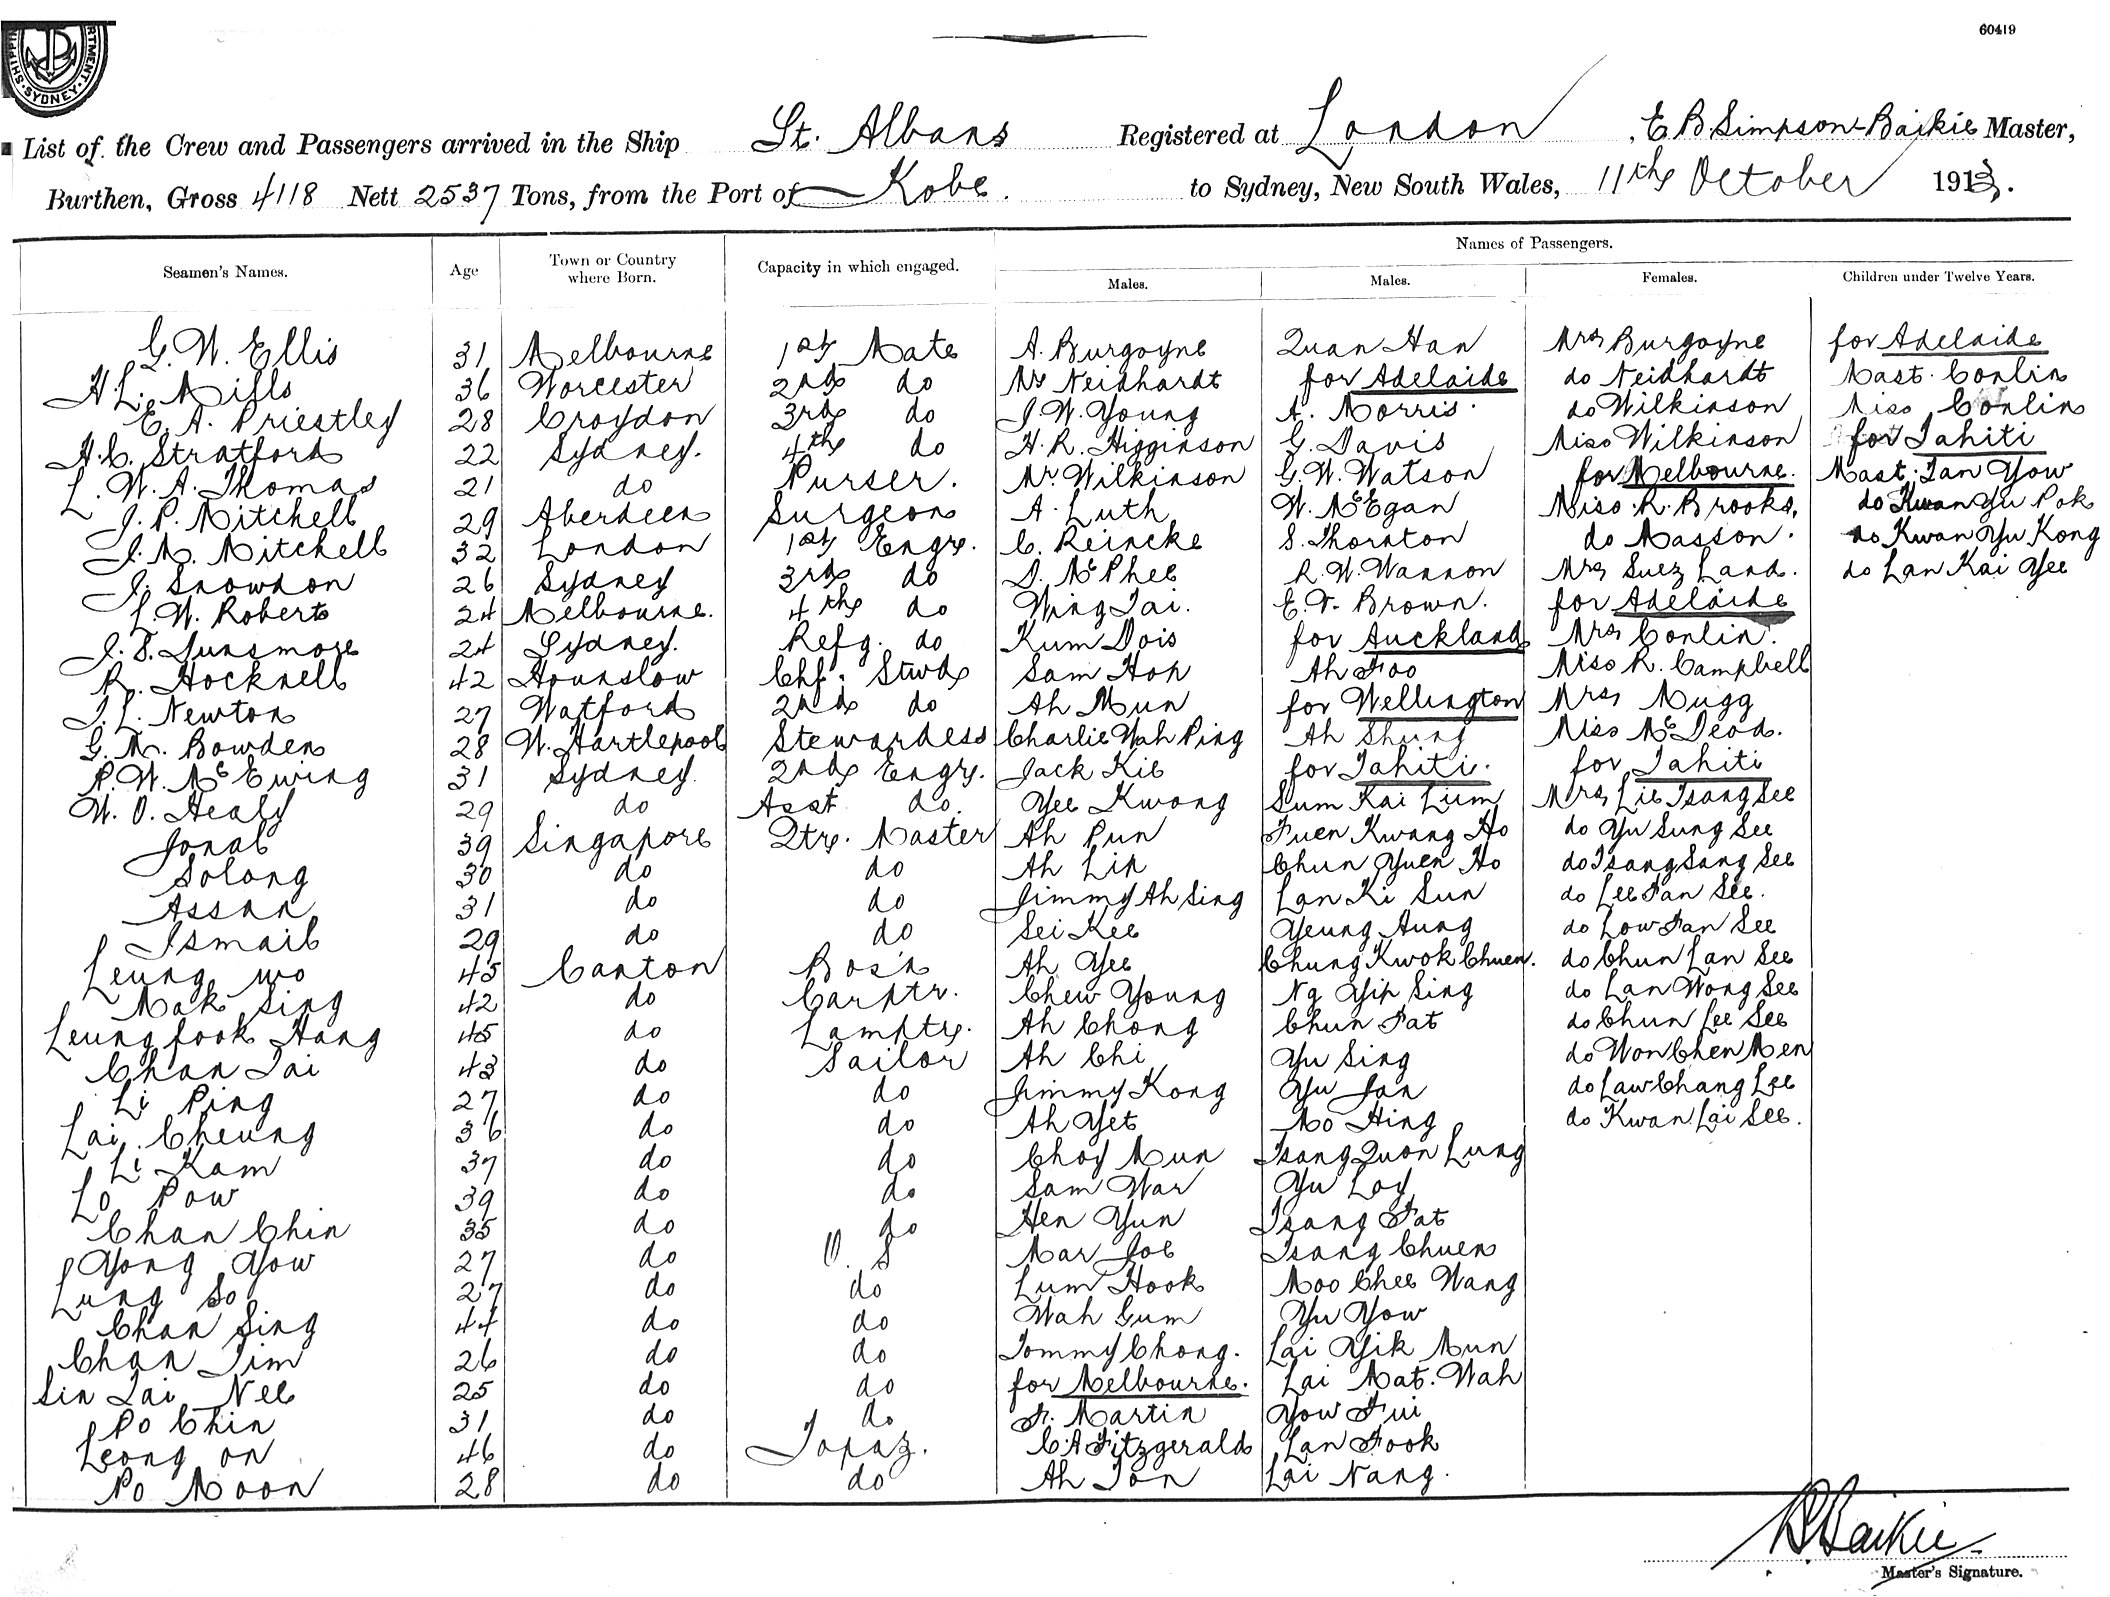 SHIPPIN RTMENT. SYDNEY.
60419
List of the Crew and Passengers arrived in the Ship St. Albans Registered at London, E B. Simpson-Baikie Master,
Burthen, Gross 4118 Nett 2537 Tons, from the Port of Kobe. to Sydney, New South Wales, 11th October 1913.
Names of Passengers.
Seamen's Names. Age Town or Country where Born. Capacity in which engaged. Males. Males. Females. Children under Twelve Years.
G. W. Ellis 31 Melbourne 1st Mate A. Burgoyne Quan Han Mrs Burgoyne for Adelaide
H L. Mills 36 Worcester 2nd do Mr Neidhardt for Adelaide do Neidhardt Mast. Conlin
E. A. Priestley 28 Croydon 3rd do J. W. Young A. Morris. do Wilkinson Miss Conlin
H. C. Stratford 22 Sydney. 4th do H. R. Higginson G. Davis Miss Wilkinson for Tahiti
L. W. A. Thomas 21 do Purser. Mr. Wilkinson G. W. Watson for Melbourne. Mast. Tan Yow
J. P. Mitchell 29 Aberdeen Surgeon A. Luth W. McEgan Miss. R. Brooks, do Kwan Yu Pok
J. M. Mitchell 32 London 1st Engr. C. Reincke S. Thornton do Masson. do Kwan Yu Kong
J. Snowdon 26 Sydney 3rd do D. McPhee R. W. Wannon Mrs Suez Land. do Lan Kai Yee
L. W. Roberts 24 Melbourne. 4th do Wing Tai. E. V. Brown. for Adelaide
J. S. Dunsmore 24 Sydney. Refg. do Kum Dois for Auckland Mrs Conlin.
R. Hocknell 42 Hounslow Chf. Stwd Sam Hop Ah Foo Miss R. Campbell
J. L. Newton 27 Watford 2nd do Ah Mun for Wellington Mrs Mugg
G. M. Bowden 28 W. Hartlepool Stewardess Charlie Wah Ping Ah Shung Miss McLeod.
P. W. McEwing 31 Sydney 2nd Engr. Jack Kie for Tahiti. for Tahiti
W. O. Healy 29 do Asst do. Yee Kwong Sum Kai Lum Mrs Lie Tsang See
Jonal 39 Singapore Qtr. Master Ah Pun Fuen Kwang Ho do Yu Sung See
Solong 30 do do Ah Lip Chun Yuen Ho do Tsang Sang See
Assan 31 do do Jimmy Ah Sing Lan Ki Sun do Lee Pan See.
Ismail 29 do do Sei Kee Yeung Aung do Low Pan See
Leung wo 45 Canton Bos'n Ah Yee Chung Kwok Chuen. do Chun Lan See
Mak Sing 42 do Carptr. Chew Young Ng Yip Sing do Lan Wong See
Leung fook Hang 45 do Lamptr. Ah Chong Chun Fat do Chun Lee See
Chan Tai 43 do Sailor Ah Chi Yu Sing do Won Chen Men
Li Ping 27 do do Jimmy Kong Yu Jan do Law Chang Lee
Lai Cheung 36 do do Ah Yet Mo Hing do Kwan Lai See.
Li Kam 37 do do Choy Mun Tsang Quon Lung
Lo Pow 39 do do Sam War Yu Loy
Chan Chin 35 do do Hen Yun Tsang Fat
Yong Yow 27 do O. S Mar Joe Tsang Chuen
Lung So 27 do do Lum Hook Moo Chee Wang
Chan Sing 44 do do Wah Gum Yu Yow
Chan Tim 26 do do Tommy Chong. Lai Yik Mun
Sin Tai Nee 25 do do for Melbourne. Lai Mat. Wah
Po Chin 31 do do F. Martin Yow Fui
Leong on 46 do Topaz. C. A Fitzgerald Lan Fook
Po Moon 28 do do Ah Ton Lai Nang.
Baikie
Master's Signature.